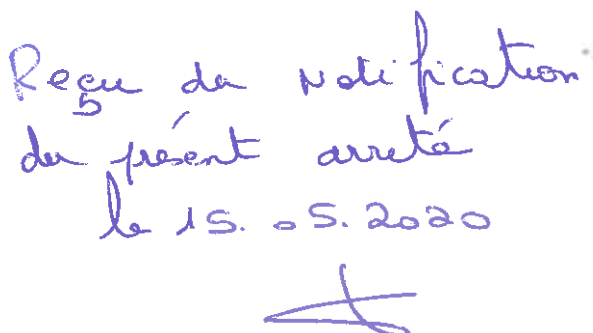 Reçu da Notification
du présent arreté
le 15.05.2020